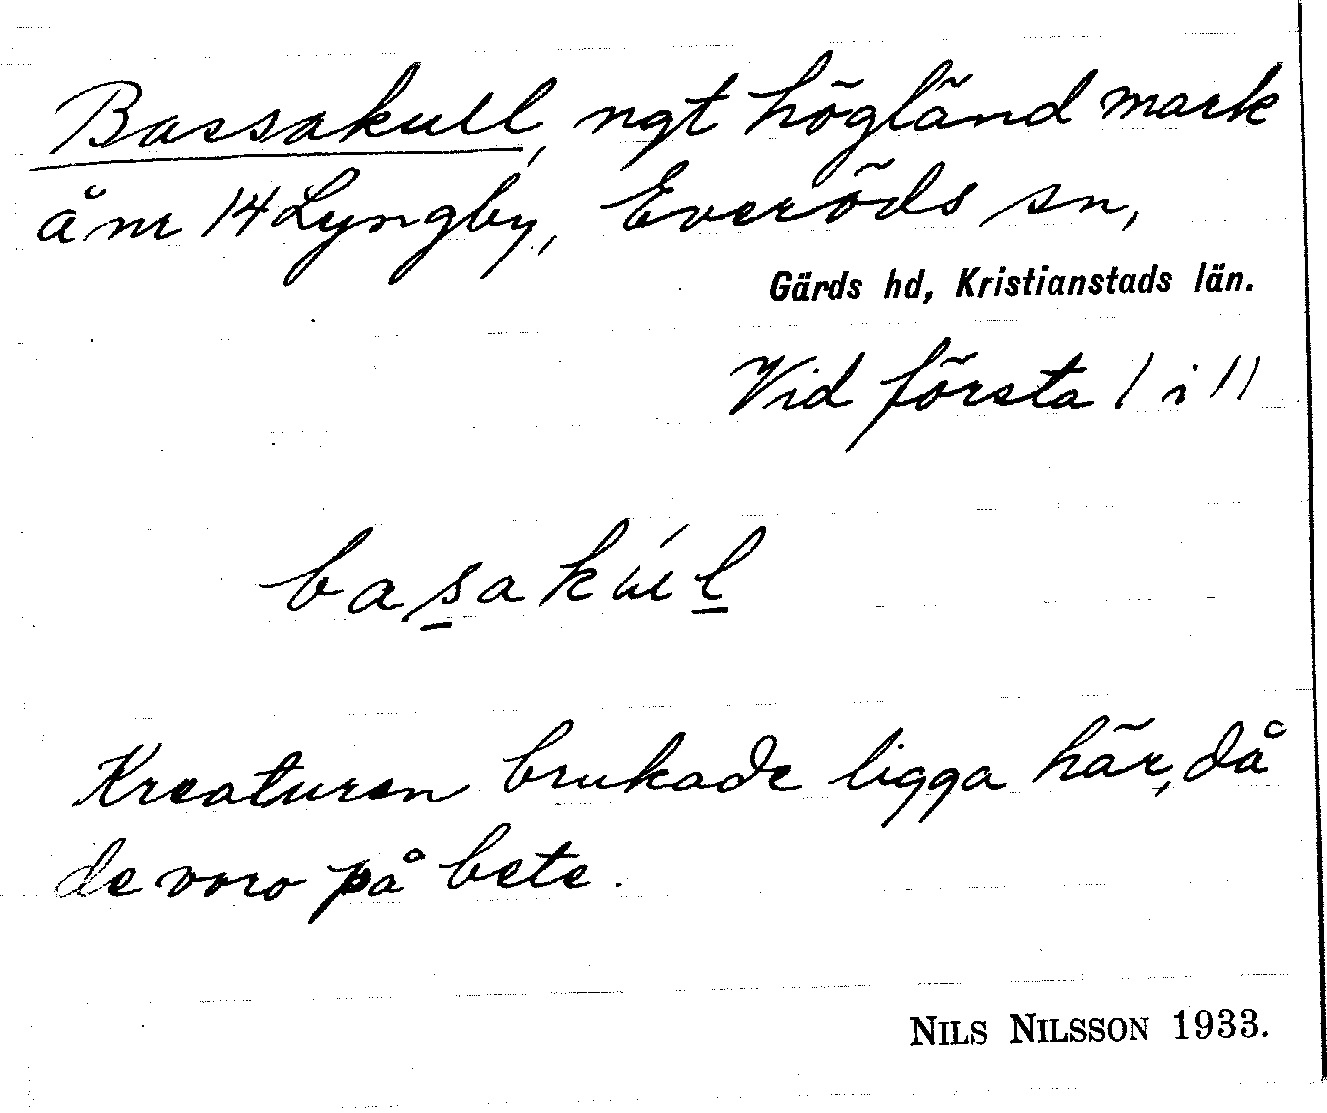 Bassakull, ngt högländ mark
å nr 14 Lyngby, Everöds sn,
Gärds hd, Kristianstads län.
Vid första l i ll
basakúl
Kreaturen brukade ligga här, då
de voro på bete.
NILS NILSSON 1933.